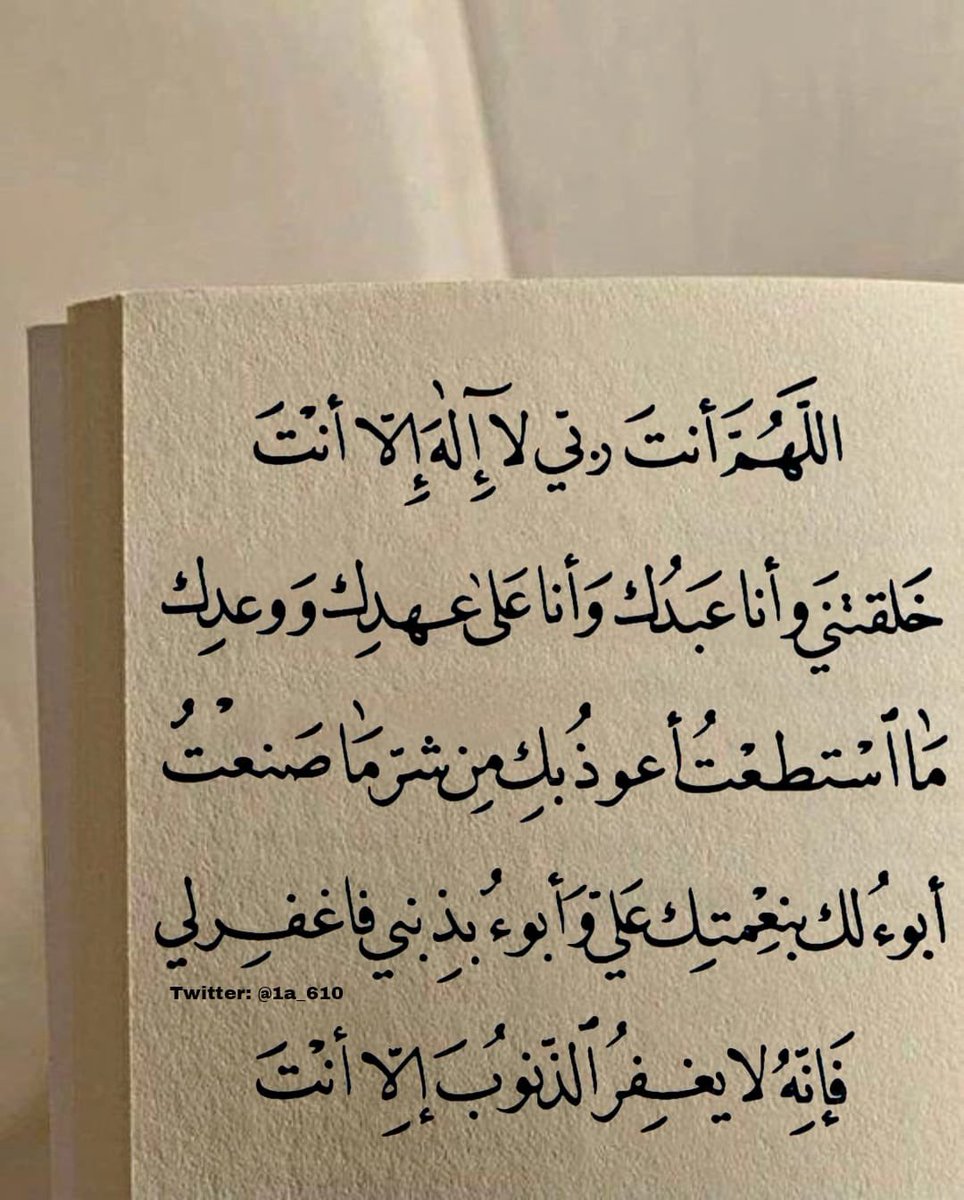 اللَّهُمَّ أنتَ ربّي لا إِلٰهَ إِلّا أنْتَ
خَلقتنَي وأنا عَبدُك وَأنا عَلىٰ عهدِك وَوعدِك
مَا ٱسْتطعْتُ أعوذُ بكِ مِن شرّ مَا صَنعْتُ
أبوءُ لك بنعْمتِك عَليّ وَأبوءُ بذِنبي فاغفِرلي
Twitter: @1a_610
فَإنِّهُ لا يغفِرُ ٱلذّنوُبَ إِلّا أنْتَ